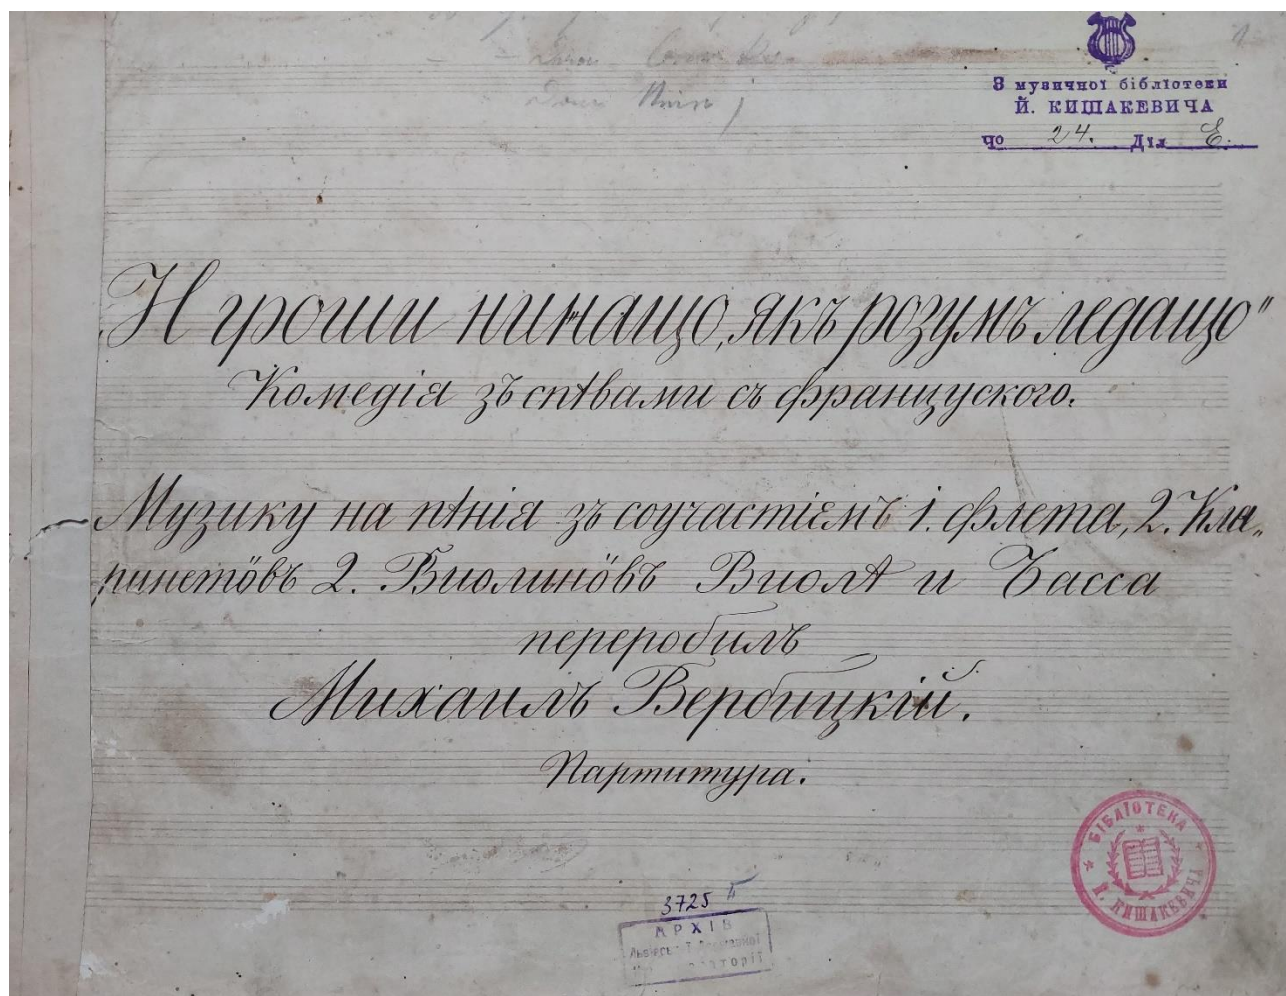 З музичної бібліотеки
Й. КИШАКЕВИЧА
Чо 24. Діл Е.
„И гроши нинащо, якъ розумъ ледащо"
Комедія зъ спѣвами съ французского.
Музику на пѣнія зъ соучастіемъ 1. флета, 2. Кла„
ринетôвъ 2. Виолинôвъ Виолѣ и Басса
переробилъ
Михаилъ Вербицкій.
Партитура.
БІБЛІОТЕКА
Й. КИШАКЕВИЧ
3725
АРХІВ